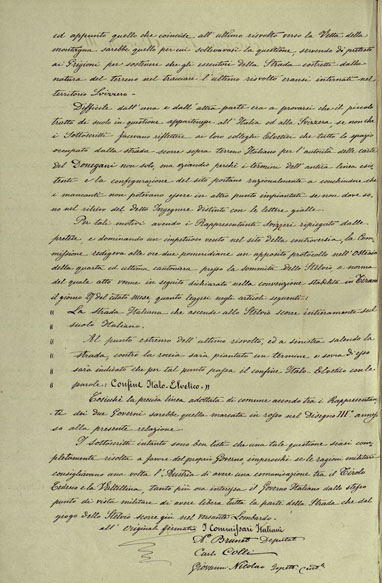 ed appunto quello che coincide all'ultimo risvolto verso la Vetta della
montagna sarebbe quello per cui sollevavasi la questione, servendo di pretesto
ai Grigioni per sostenere che gli esecutori della Strada costretti dalla
natura del terreno nel tracciare l'ultimo risvolto eransi internati nel
territorio Svizzero.
Difficile dall'una e dall'altra parte era a provarsi che il piccolo
tratto di suolo in questione appartenesse all'Italia od alla Svizzera se non che
i Sottoscritti facevano riflettere ai loro colleghi Elvetici che tutto lo spazio
occupato dalla strada scorre sopra terreno Italiano per l'autorità delle carte
del Donegani non solo ma eziandio perchè i termini dell'antica linea esi,
stenti e la configurazione del sito portano razionalmente a conchiudere che
i mancanti non potevano essere in altro punto impiantati se non dove so,
no nel rilievo del detto Ingegnere distinti con la lettere gialle.
Per tali motivi avendo i Rappresentanti Svizzeri ripiegato dalle
pretese e dominando un impetuoso vento nel sito della controversia, la Com,
missione redigeva alle ore due pomeridiane un apposito protocollo nell'Osteria
della quarta ed ultima cantoniera presso la sommità dello Stelvio a norma
del quale atto venne in seguito dichiarato nella convenzione stabilita in Tirano
il giorno 27 del citato Mese, quanto leggesi negli articoli seguenti:
" La strada Italiana che ascende allo Stelvio scorre interamente sul
" suolo Italiano.
" Al punto estremo dell'ultimo risvolto, ed a sinistra salendo la
" strada, contro la roccia sarà piantato un termine e sovra d'esso
" sarà indicato che per tal punto passa il confine Italo-Elvetico con le
" parole: Confine Italo-Elvetico. "
Cosicchè la precisa linea adottata di comune accordo tra i Rappresentan,
ti dei due Governi sarebbe quella marcata in rosso nel Disegno III° annes,
so alla presente relazione.
I sottoscritti intanto sono ben lieti che una tale questione siasi com,
pletamente risolta a favore del proprio Governo imperocchè se le ragioni militari
consigliavano una volta l'Austria di avere una comunicazione tra il Tirolo
Tedesco e la Valtellina tanto più ora interessa il Governo Italiano dallo stesso
punto di vista militare di avere libera tutta la parte della Strada che dal
giogo dello Stelvio scorre giù nel versante Lombardo.
all'Original firmati I Commissari Italiani
Deputato
Carlo
Giovanni Nicolao